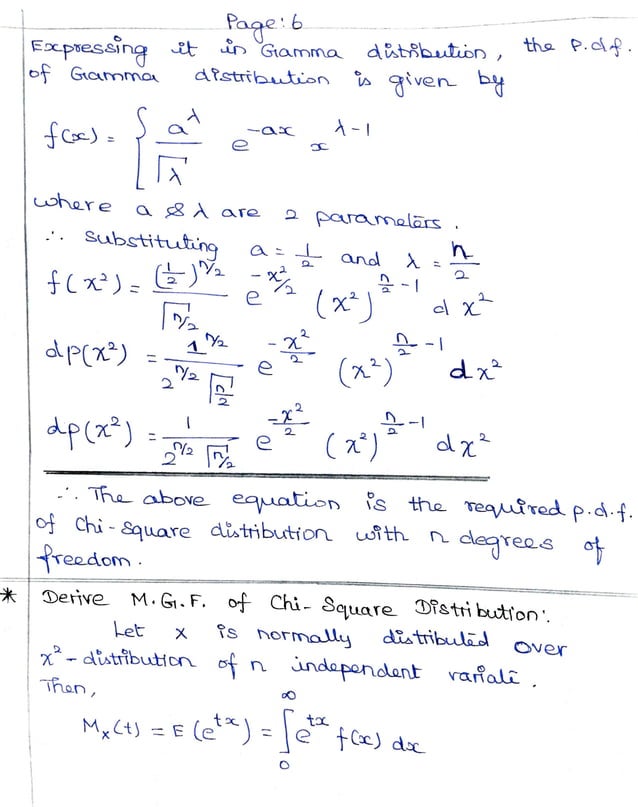 Page: 6
Expressing it in Gamma distribution, the p.d.f.
of Gamma distribution is given by
f(x) = { a^λ / Γλ e^{-ax} x^{λ-1}
where a & λ are 2 parameters.
∴ Substituting a = 1/2 and λ = n/2
f(x²) = (1/2)^{n/2} / Γn/2 e^{-x²/2} (x²)^{n/2 - 1} d x²
dp(x²) = 1^{n/2} / 2^{n/2} Γn/2 e^{-x²/2} (x²)^{n/2 - 1} dx²
dp(x²) = 1 / 2^{n/2} Γn/2 e^{-x²/2} (x²)^{n/2 - 1} dx²
∴ The above equation is the required p.d.f.
of Chi-Square distribution with n degrees of
freedom.
* Derive M.G.F. of Chi-Square Distribution:.
Let x is normally distributed over
x²-distribution of n independent variate.
Then,
M_x(t) = E(e^{tx}) = ∫_0^∞ e^{tx} f(x) dx